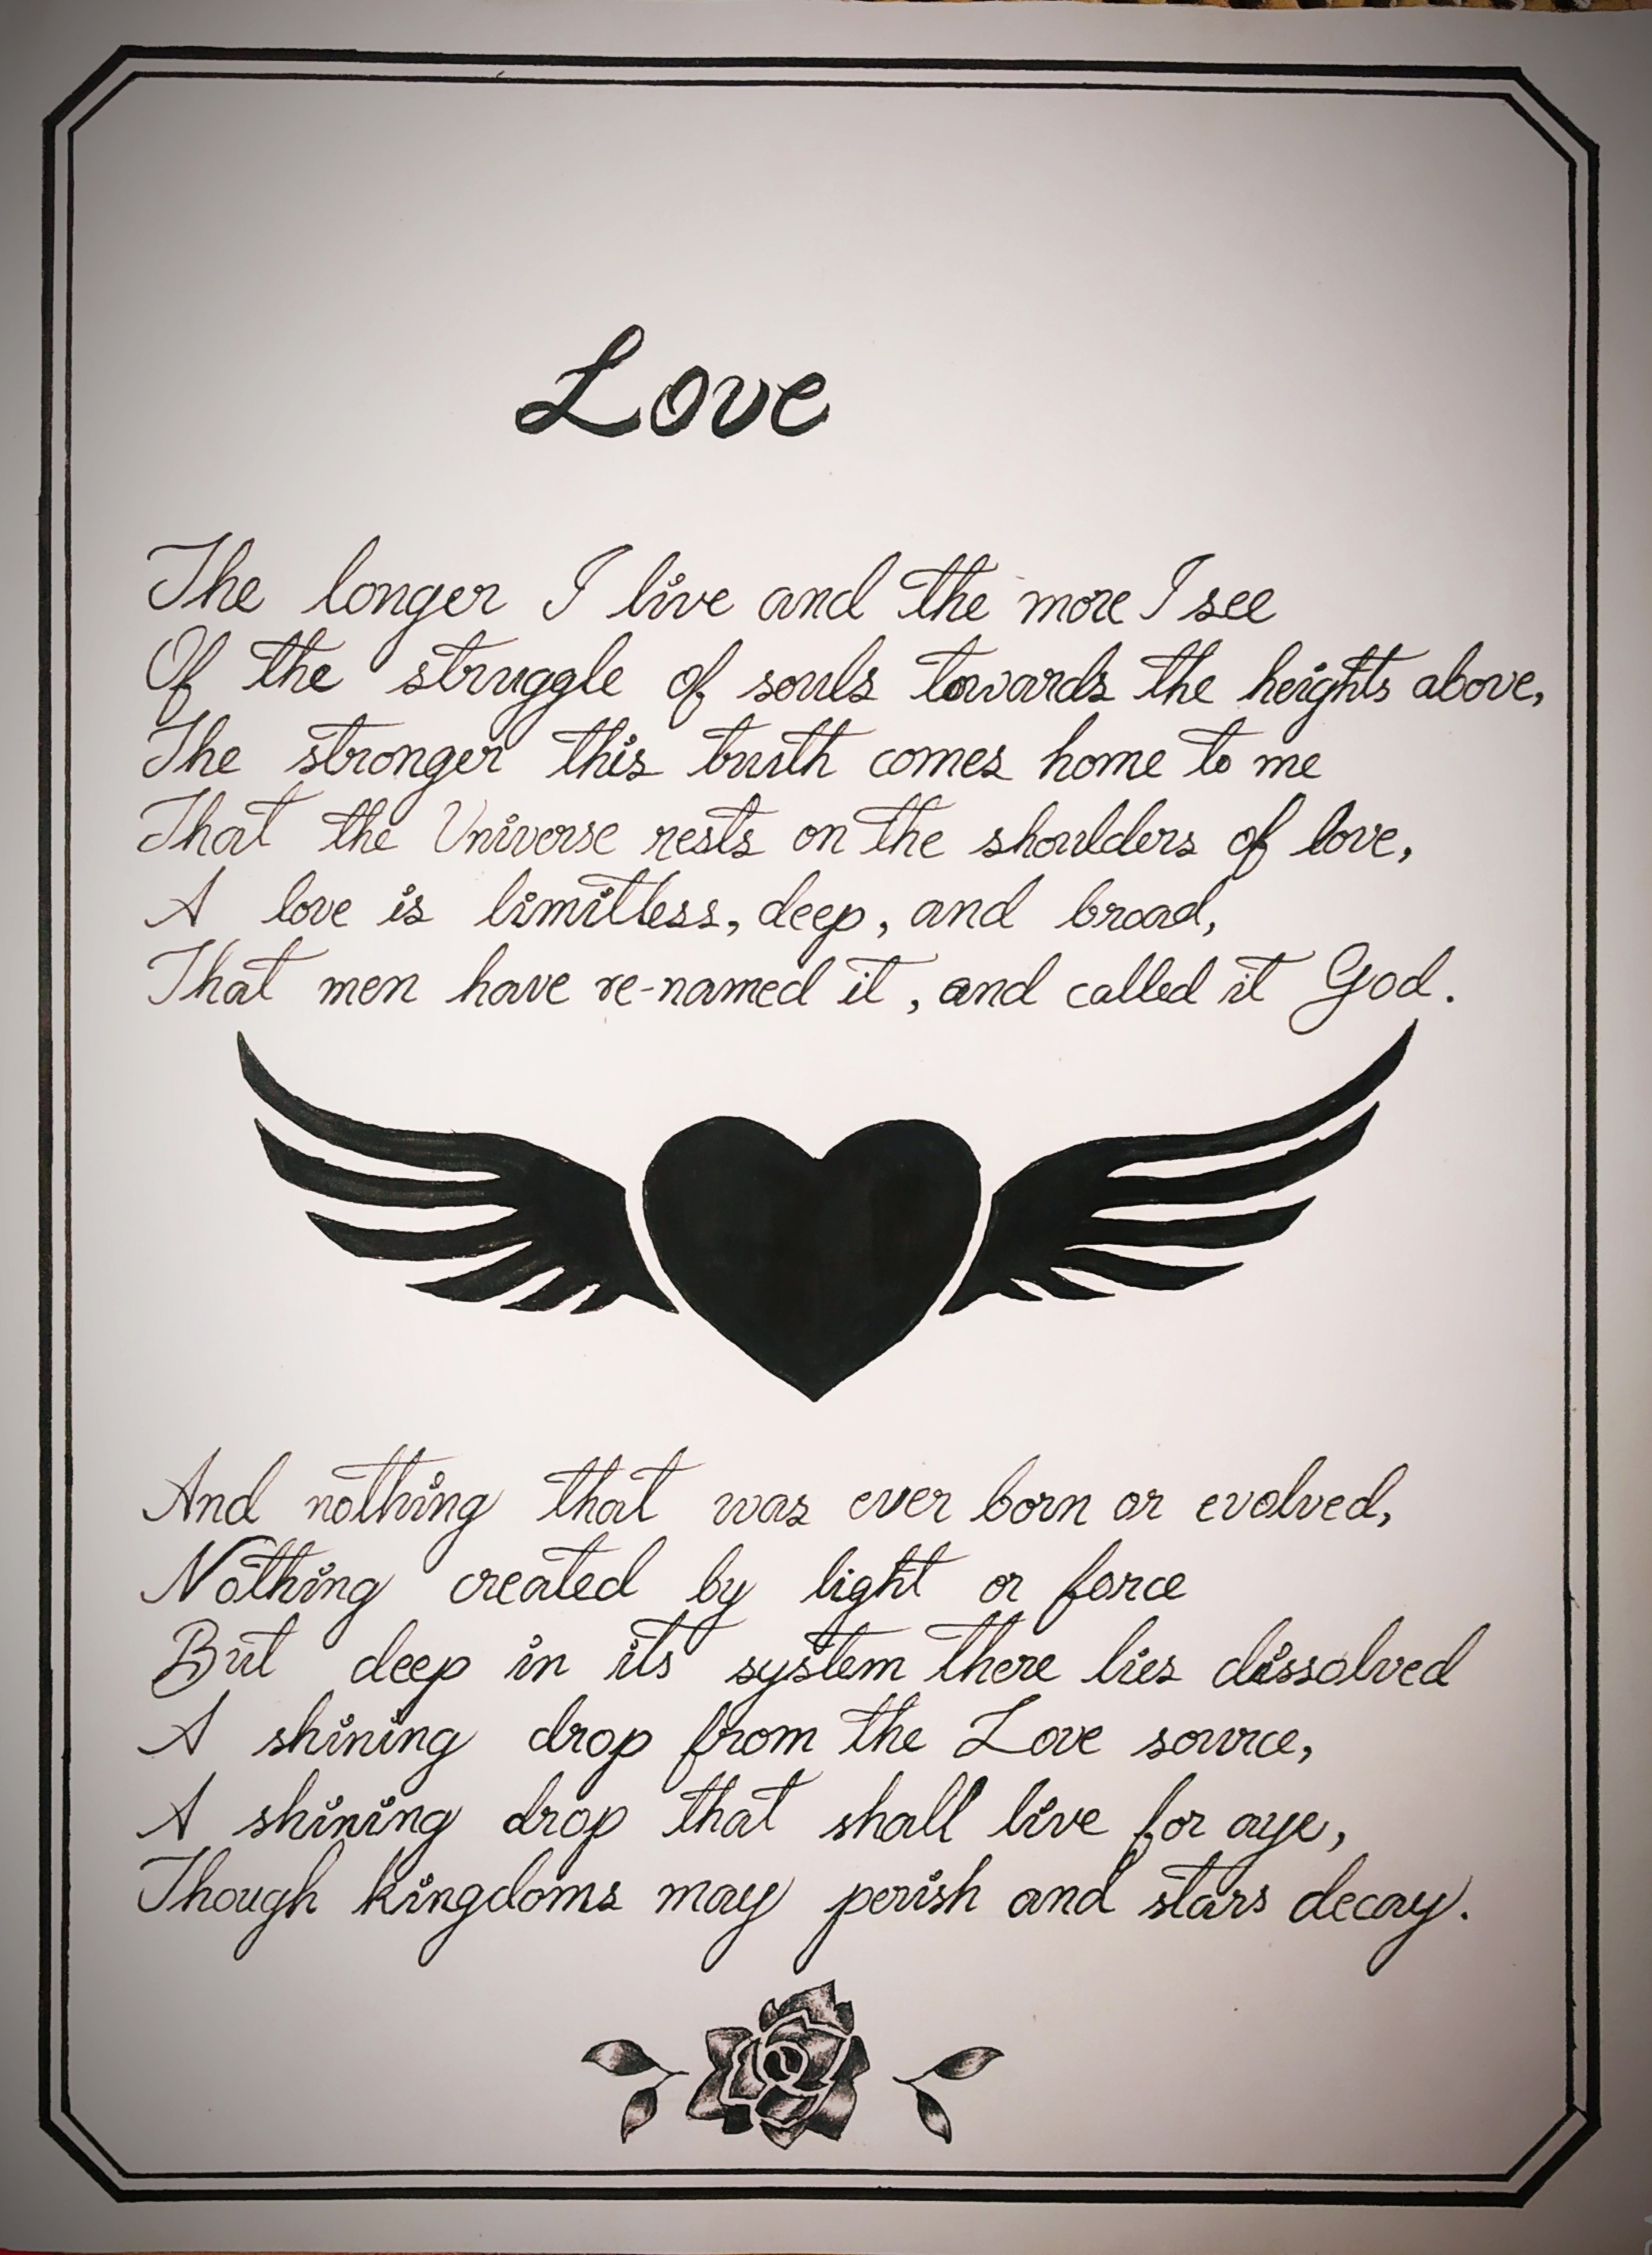 Love
The longer I live and the more I see
Of the struggle of souls towards the heights above,
The stronger this truth comes home to me
That the Universe rests on the shoulders of love,
A love is limitless, deep, and broad,
That men have re-named it, and called it God.
And nothing that was ever born or evolved,
Nothing created by light or force
But deep in its system there lies dissolved
A shining drop from the Love source,
A shining drop that shall live for aye,
Though kingdoms may perish and stars decay.